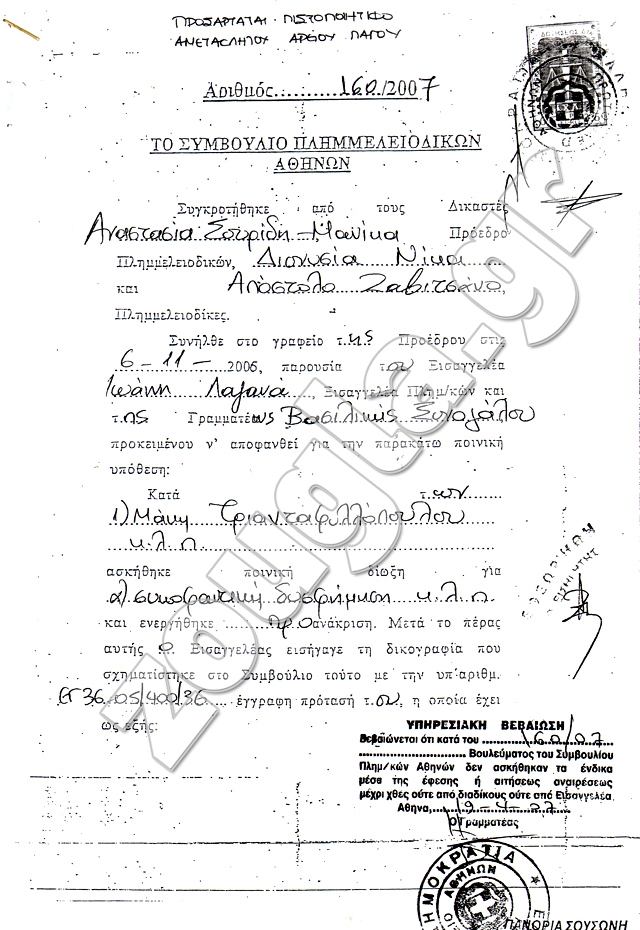 ΠΡΟΣΑΡΤΑΤΑΙ ΠΙΣΤΟΠΟΙΗΤΙΚΟ
ΑΜΕΤΑΚΛΗΤΟΥ ΑΡΕΙΟΥ ΠΑΓΟΥ
Αριθμός..........160./2007
ΤΟ ΣΥΜΒΟΥΛΙΟ ΠΛΗΜΜΕΛΕΙΟΔΙΚΩΝ
ΑΘΗΝΩΝ
Συγκροτήθηκε από τους Δικαστές
Αναστασία Σουρίδη-Μανίκα Πρόεδρο
Πλημμελειοδικών, Διονυσία Νίκα
και Απόστολο Ζαβιτσάνο,
Πλημμελειοδίκες.
Συνήλθε στο γραφείο τ.ης Προέδρου στις
6-11-2006, παρουσία του Εισαγγελέα
Ιωάννη Λαγανά, Εισαγγελέα Πλημ/κών και
τ.ης Γραμματέως Βασιλικής
προκειμένου ν' αποφανθεί για την παρακάτω ποινική
υπόθεση:
Κατά τ.ων
1) Μάκη Τριανταφυλλόπουλου
κ.λ.π.
ασκήθηκε ποινική δίωξη για
α) συκοφαντική δυσφήμηση κ.λ.π
και ενεργήθηκε προανάκριση. Μετά το πέρας
αυτής ο Εισαγγελέας εισήγαγε τη δικογραφία που
σχηματίστηκε στο Συμβούλιο τούτο με την υπ'αριθμ.
ΕΓ36.05/400/36 έγγραφη πρότασή τ.ου, η οποία έχει
ως εξής:
ΥΠΗΡΕΣΙΑΚΗ ΒΕΒΑΙΩΣΗ
Βεβαιώνεται ότι κατά του 160/07
Βουλεύματος του Συμβουλίου
Πλημ/κών Αθηνών δεν ασκήθηκαν τα ένδικα
μέσα της έφεσης ή αιτήσεως αναιρέσεως
μέχρι χθες ούτε από διαδίκους ούτε από Εισαγγελέα.
Αθήνα, 19-4-07
Ο Γραμματέας
ΗΜΟΚΡΑΤΙΑ
ΑΘΗΝΩΝ
ΠΑΝΩΡΙΑ ΣΟΥΣΩΝΗ
zougla.gr